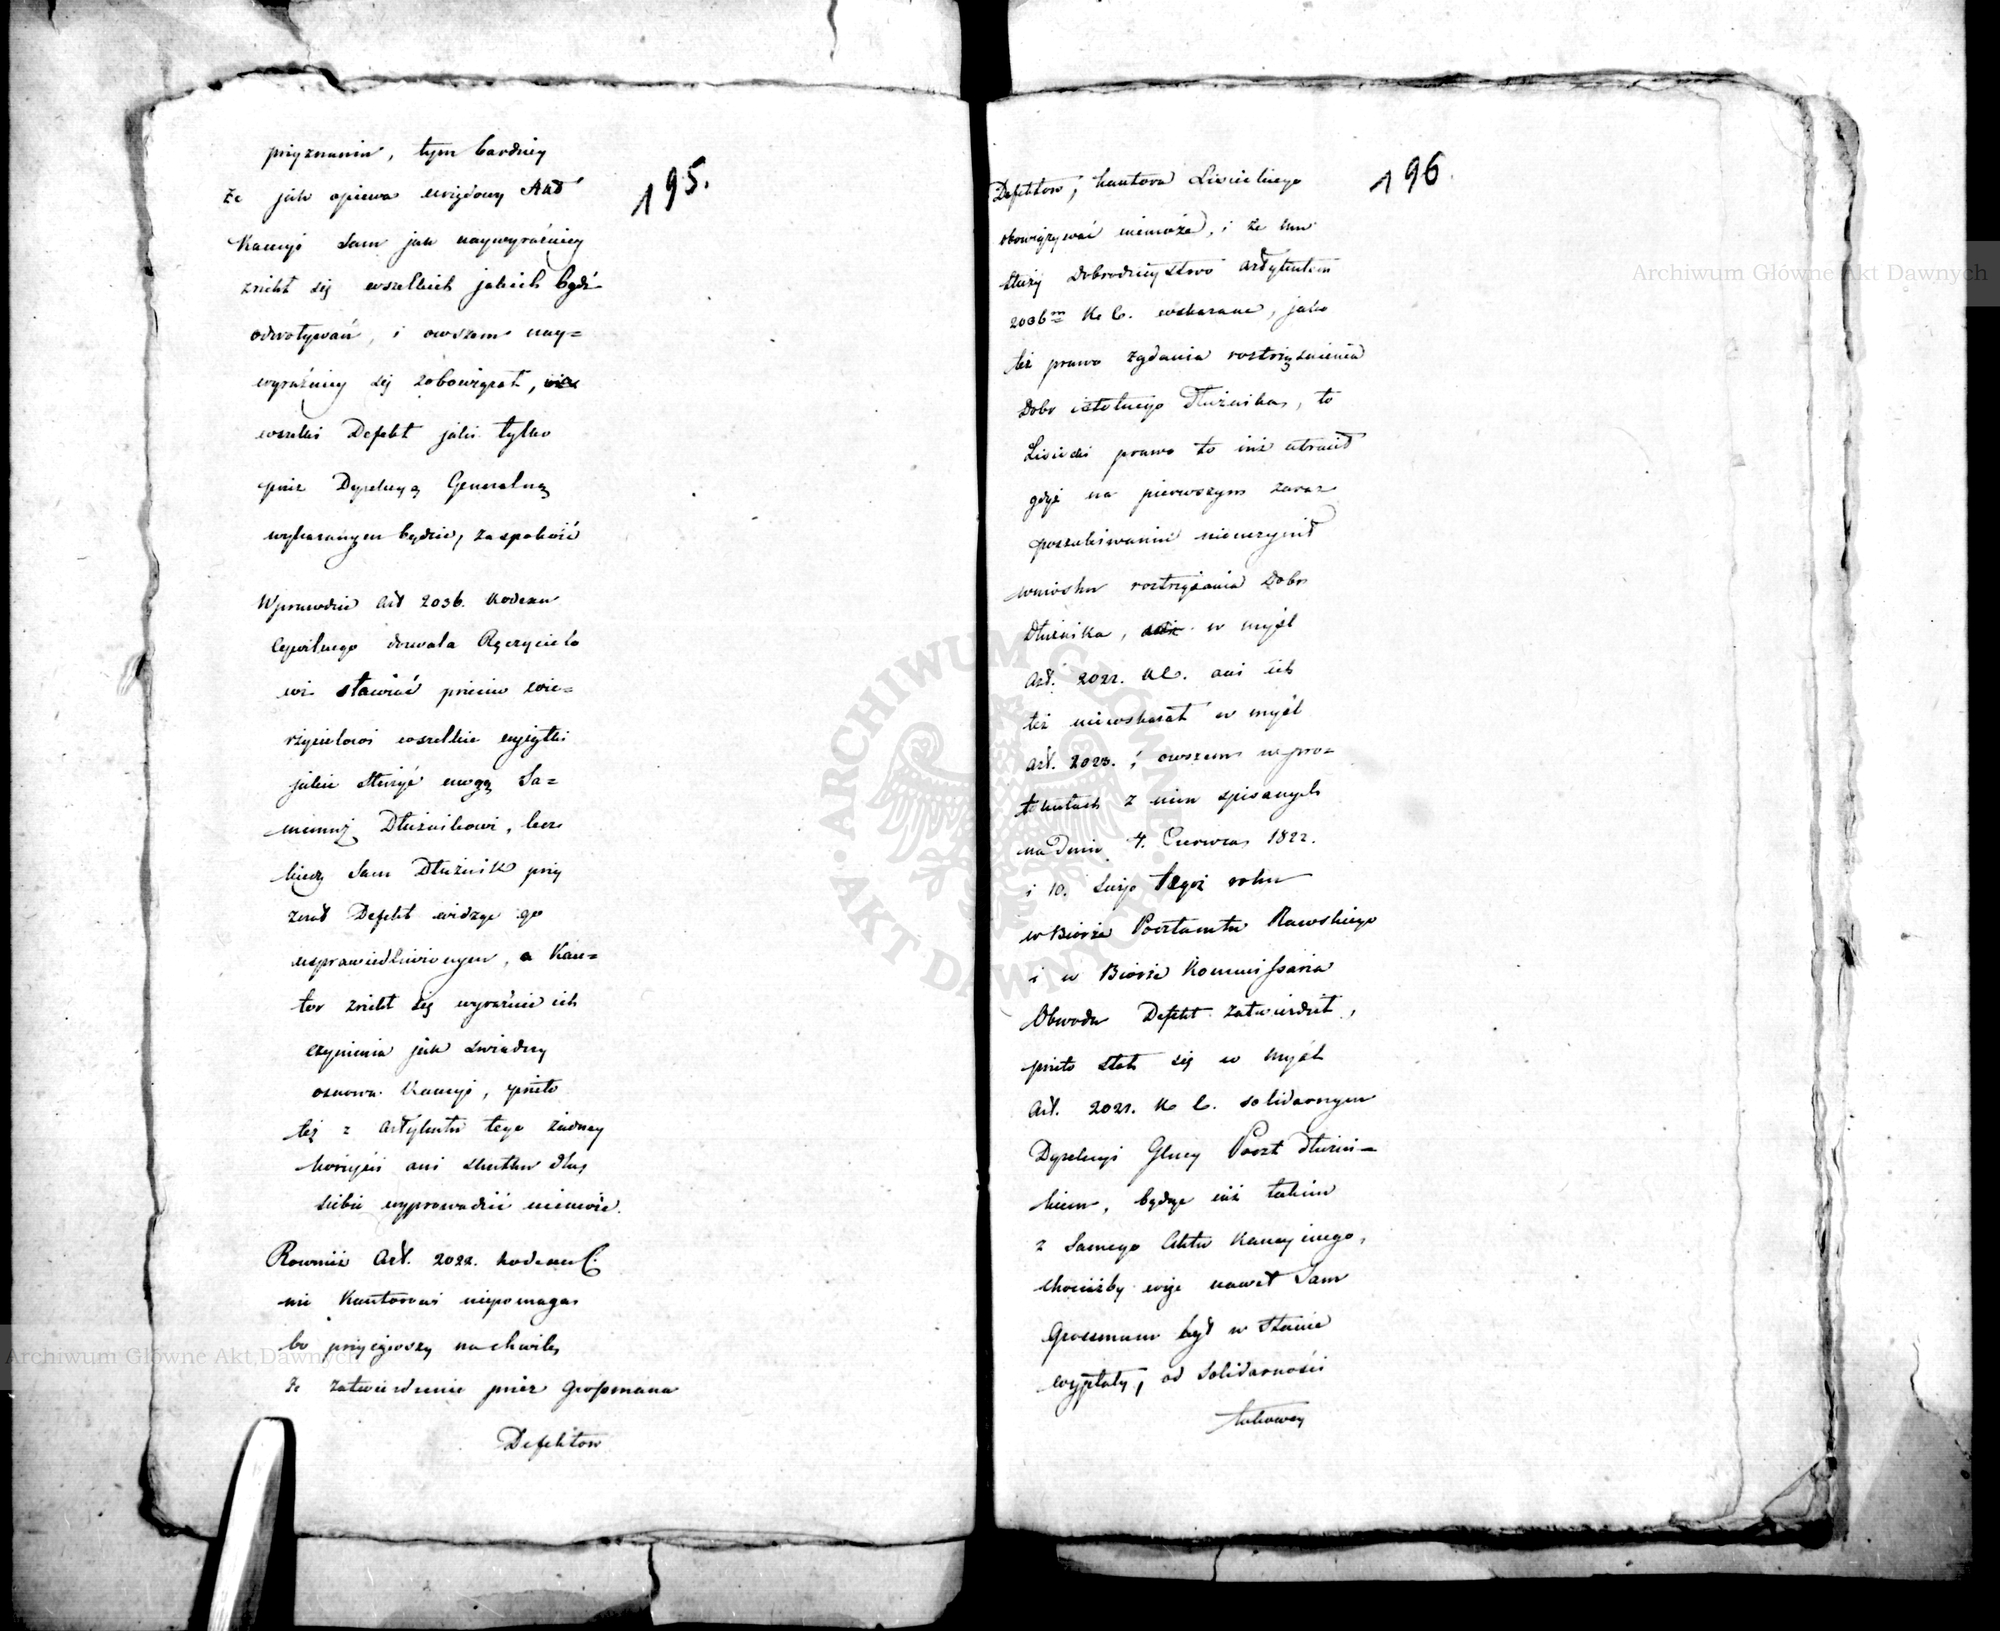 195.
przyznania, tym bardziey
że jak opiewa urzędowy Akt
Kaucyi sam jak naywyraźniey
zrzekł się wszelkich jakich bądź
odwoływań, i owszem nay=
wyraźniey się zobowiązał,
wszelki Defekt jaki tylko
przez Dyrekcyą Generalną
wykazanym będzie, zaspokoić
Wprawdzie Art 2036. Kodexu
Cywilnego dozwala Ręczycielo
wi stawiać przeciw wie=
rzycielowi wszelkie
jakie służyć mogą Sa=
memuż Dłużnikowi, lecz
kiedy Sam Dłużnik przy
znał Defekt widząc go
usprawiedliwionym, a Kan=
tor zrzekł się wyraźnie ich
czynienia jak świadczy
osnowa Kaucyi, przeto
też z Artykułu tego żadney
korzyści ani skutku dla
siebie wyprowadzić niemoże.
Rownież Art. 2022. kodexu C.
nie Kantorowi niepomaga
bo przyiąwszy na chwilę
że zatwierdzenie przez Grossmana
Defektow
196.
Defektow, kantora Lisieckiego
obowiązywać niemoże, i że mu
służy Dobrodzieystwo Artykułem
2036m K C. wskazane, jako
też prawo żądania roztrząśnienia
Dobr istotnego Dłużnika, to
Lisiecki prawo to iuż utracił
gdyż na pierwszym zaraz
poszukiwaniu nieuczynił
wniosku roztrząsania Dobr
Dłużnika, w myśl
Art. 2022. KC. ani ich
też niewskazał w myśl
Art. 2023. i owszem w pro=
tokułach z nim spisanych
na Dniu 4. Czerwca 1822.
i 10. tegoż roku
w Biorze Pocztamtu Rawskiego
i w Biorze Kommissarza
Obwodu Defekt zatwierdził,
przeto stał się w myśl
Art. 2021. K C. solidarnym
Dyrekcyi Glney Poczt dłużni=
kiem, będąc iuż takim
z Samego Aktu Kaucyinego,
chociażby więc nawet Sam
Grossmann był w Stanie
wypłaty, od Solidarności
takowey
Archiwum Główne Akt Dawnych
Archiwum Główne Akt Dawnych
ARCHIWUM GŁÓWNE
AKT DAWNYCH